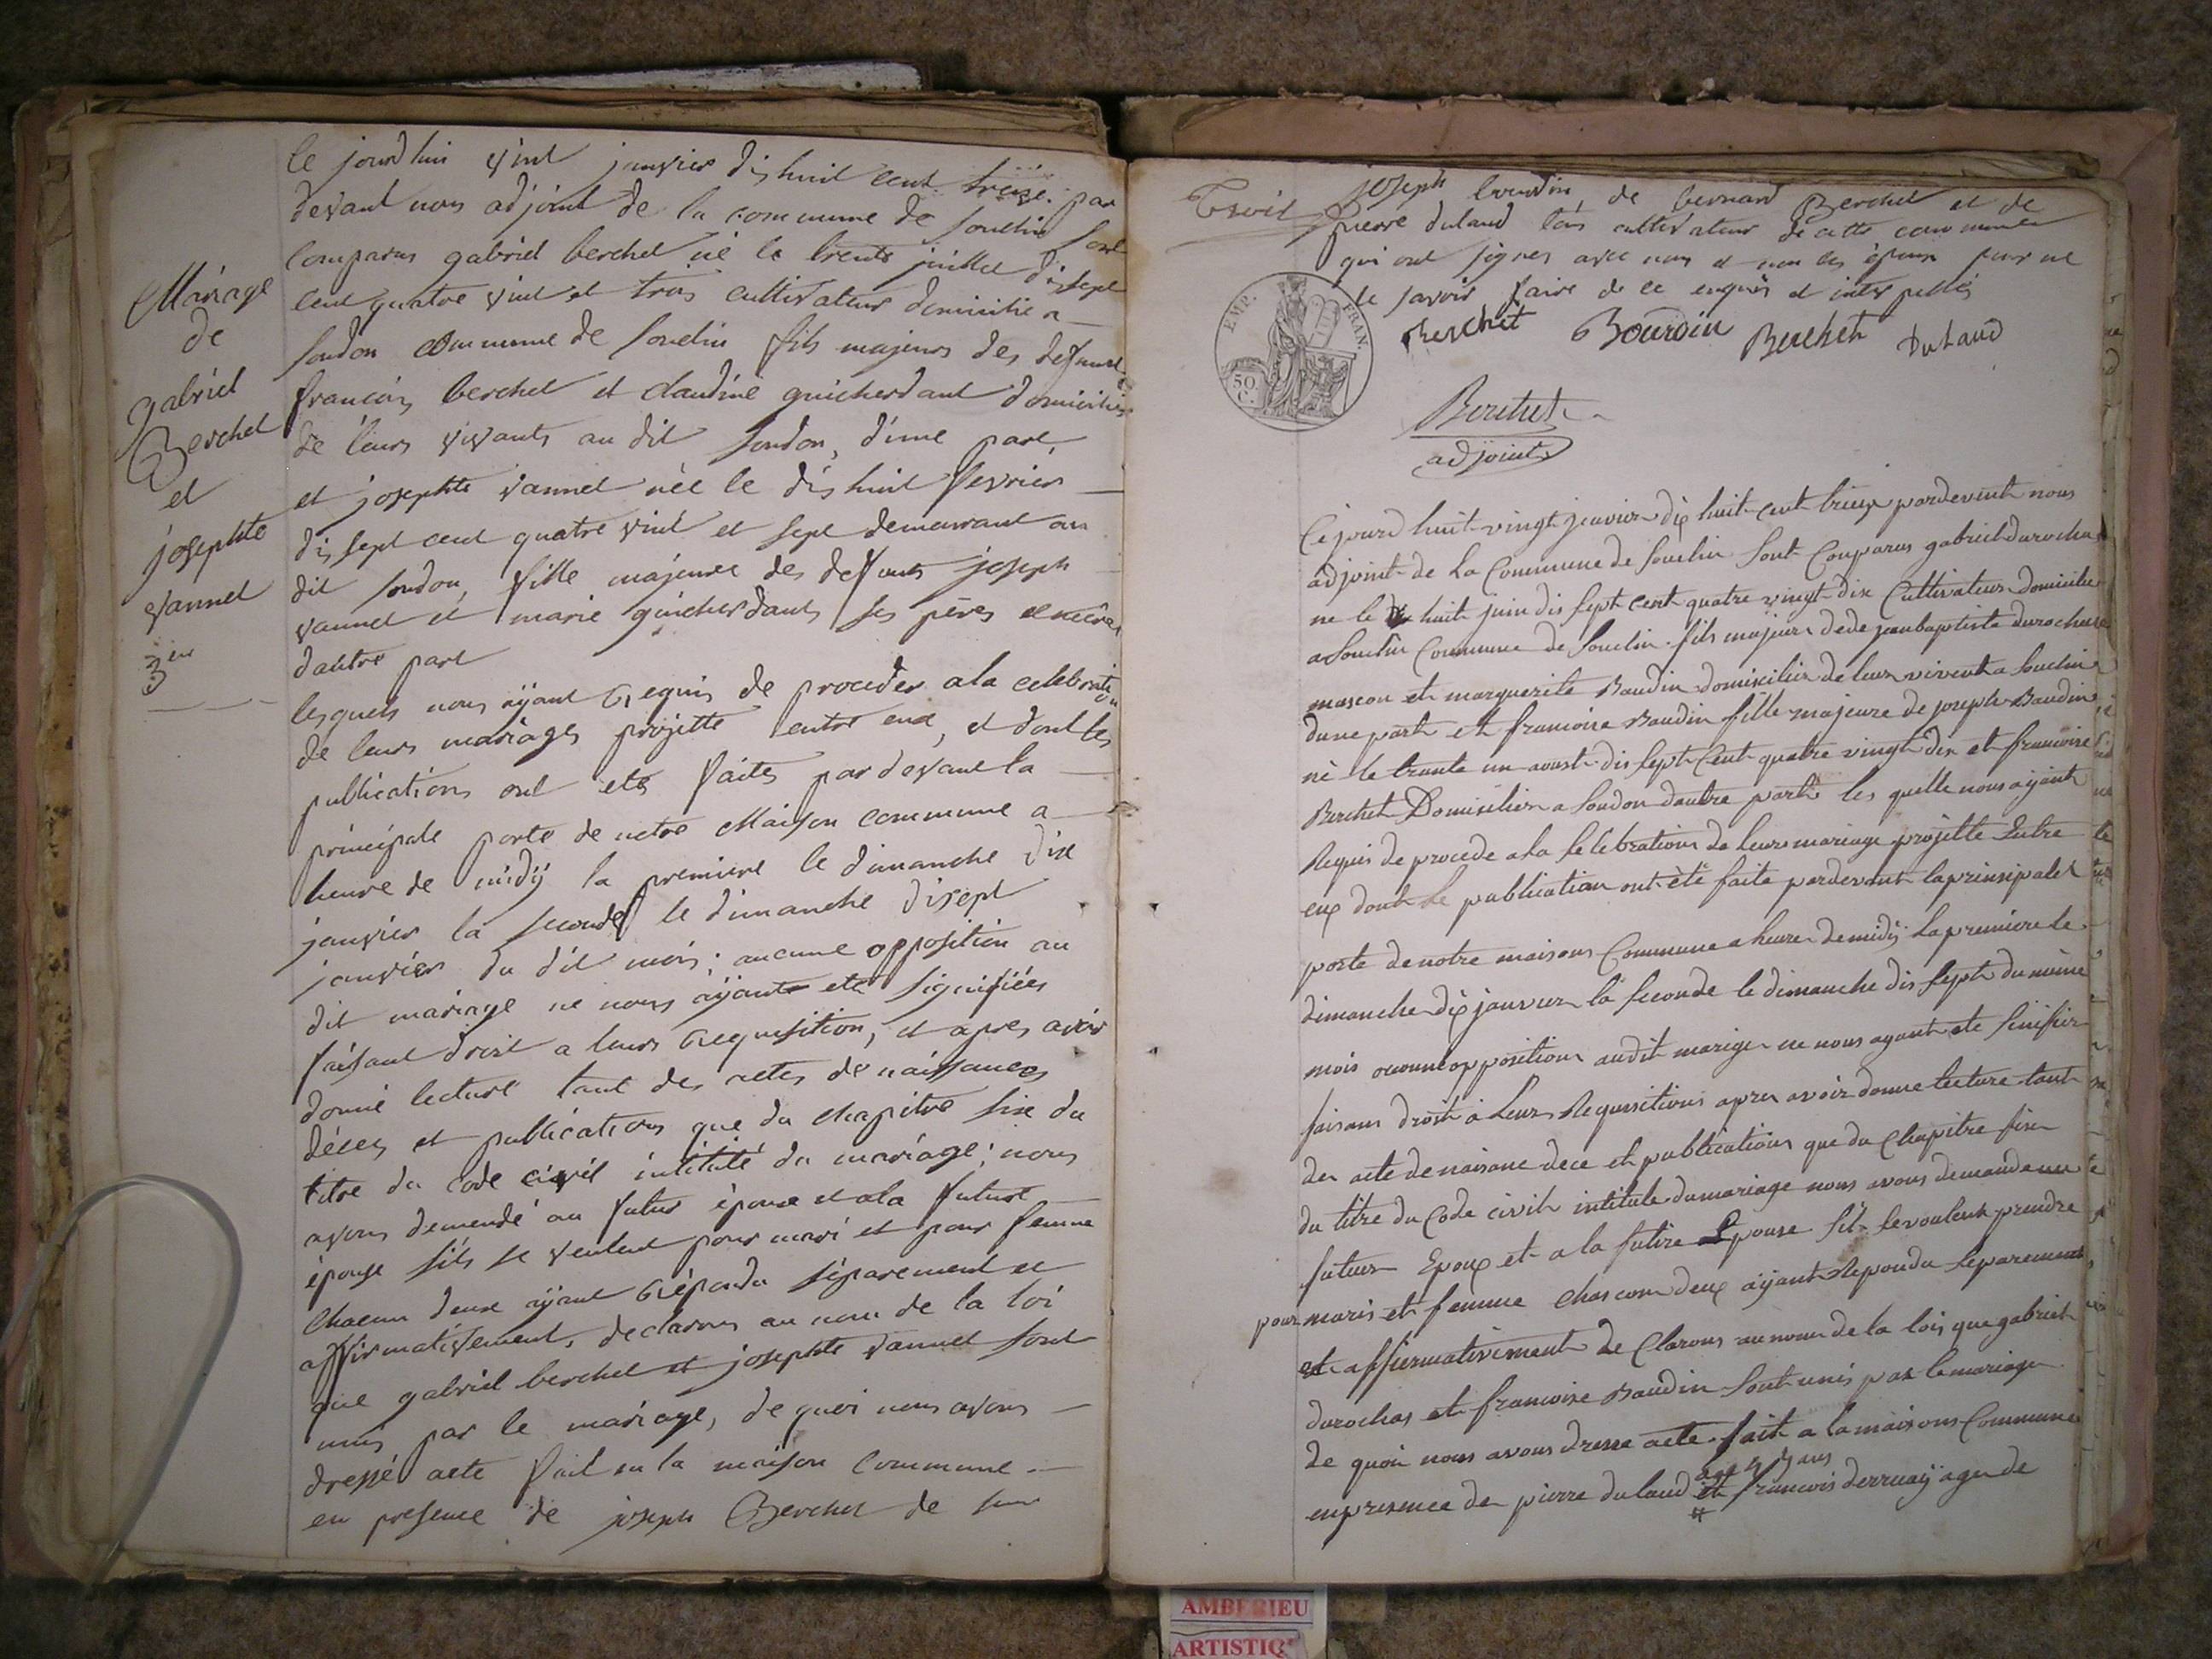 Mariage
de
gabriel
Berchet
et
josephte
vannet
3me
le jourdhui vint janvier dishuit cent treize par
devant nous adjoint de la commune de souclin sont
comparus gabriel berchet né le trente juillet dissept
cent quatre vint et trois cultivateur domicilié a
soudon commune de souclin fils majeur des defunts
francois berchet et claudine guicherdant domiciliés
de leurs vivants au dit soudon, d'une part,
et josephte vannet née le dishuit fevrier
dissept cent quatre vint et sept demeurant au
dit soudon, fille majeure des defunts joseph
vannet et marie guicherdant ses pères et mères
dautre part
lesquels nous ayant requis de proceder a la celebration
de leurs mariages projetté entre eux, et dont les
publications ont eté faites par devant la
principale porte de notre Maison commune a
heure de midÿ la premiere le dimanche dix
janvier la seconde le dimanche disept
janvier du dit mois; aucune opposition au
dit mariage ne nous ayant eté signifiées
faisant droit a leurs requisition, et apres avoir
donné lecture tant des actes de naissances
déces et publications que du chapitre six du
titre du code civil intitulé du mariage; nous
avons demendé au futur épouse et a la future
épouse sils se veulent pour mari et pour femme
chacun deux ayant répondu séparement et
affirmativement, declarons au nom de la loi
que gabriel berchet et josephte vannet sont
unis par le mariage, de quoi nous avons
dressé acte fait en la maison commune
en presence de joseph Berchet de
joseph bourdin, de bernard Berchet et de
pierre dulaud tous cultivateurs de cette commune
qui ont signés avec nous et non les époux pour ne
le savoir faire de ce enquis et interpellés
EMP. FRAN.
50 C.
Berchet Bourdin Berchet Dulaud
Berthet
adjoint
Cejourd huit vingt janvier dix huit cent treize pardevent nous
adjoint de La Commune de Souclin Sont Comparus gabriel durochas
ne le huit juin dis sept cent quatre vingt dix Cultivateur domicilie
a Souclin Commune de Souclin fils majeur dede jeanbaptiste durochas
mascon et marguerite Baudin domicilier de leur vivent a souclin
dune part et francoise Baudin fille majeure de joseph Baudin
nè le trante un aoust dis sept Cent quatre vingt dix et francoise
Berchet Domicilier a Soudon dautre part les quelle nous aÿant
Requis de procede a la Celebration de leur mariage projette Entre
eux dont Le publication ont èté faite pardevant la prinsipalet
porte de notre maisons Commune a heure de midÿ La premiere le
dimanche dix janvier la seconde le dimanche dis sept du même
mois aucune opposition audit mariage ne nous ayant ete sinifier
faisans droit à Leur Requisitions apres avoir donne lecture tant
des acte de naisanc dece et publications que du Chapitre six
du titre du Code civil intitule du mariage nous avons demande au
futeur Epoux et a la future Epouse sils se voulent prendre
pour maris et femme chascom deux aÿant Repondu Separement
et affirmativement de Clarons au nom de la lois que gabriel
durochas et francoise Baudin sont unis par le mariage
de quoi nous avons dresse acte fait a la maisons Commune
age ans
enpresence de pierre dulaud et francois derruaÿ age de
AMBERIEU
ARTISTIQ